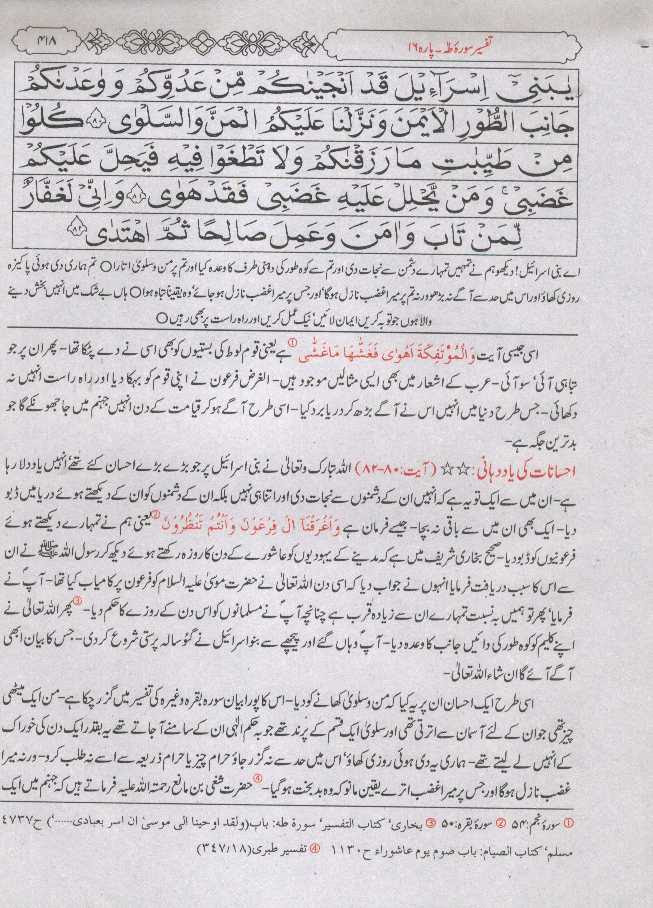 تفسیر سورۂ طہ۔ پارہ ۱۶
۴۱۸
يٰبَنِيْٓ اِسْرَآءِيْلَ قَدْ اَنْجَيْنٰكُمْ مِّنْ عَدُوِّكُمْ وَ وٰعَدْنٰكُمْ
جَانِبَ الطُّوْرِ الْاَيْمَنَ وَنَزَّلْنَا عَلَيْكُمُ الْمَنَّ وَالسَّلْوٰى ۝۸۰ كُلُوْا
مِنْ طَيِّبٰتِ مَا رَزَقْنٰكُمْ وَلَا تَطْغَوْا فِيْهِ فَيَحِلَّ عَلَيْكُمْ
غَضَبِيْ ۚ وَمَنْ يَّحْلِلْ عَلَيْهِ غَضَبِيْ فَقَدْ هَوٰى ۝۸۱ وَاِنِّيْ لَغَفَّارٌ
لِّمَنْ تَابَ وَاٰمَنَ وَعَمِلَ صَالِحًا ثُمَّ اهْتَدٰى ۝۸۲
اے بنی اسرائیل! دیکھو ہم نے تمہیں تمہارے دشمن سے نجات دی اور تم سے کوہ طور کی داہنی طرف کا وعدہ کیا اور تم پر من و سلویٰ اتارا○ تم ہماری دی ہوئی پاکیزہ
روزی کھاؤ اور اس میں حد سے آگے نہ بڑھو ورنہ تم پر میرا غضب نازل ہوگا‘ اور جس پر میرا غضب نازل ہو جائے‘ وہ یقیناً تباہ ہوا○ ہاں بے شک میں انہیں بخش دینے
والا ہوں جو توبہ کریں‘ ایمان لائیں‘ نیک عمل کریں اور راہ راست پر بھی رہیں○
اسی جیسی آیت وَالْمُؤْتَفِكَةَ اَهْوٰى فَغَشّٰهَا مَا غَشّٰى ① ہے یعنی قوم لوط کی بستیوں کو بھی اسی نے دے پٹکا تھا۔ پھر ان پر جو
تباہی آئی‘ سو آئی۔ عرب کے اشعار میں بھی ایسی مثالیں موجود ہیں۔ الغرض فرعون نے اپنی قوم کو بہکا دیا اور راہ راست انہیں نہ
دکھائی۔ جس طرح دنیا میں انہیں اس نے آگے بڑھ کر دریا برد کیا۔ اسی طرح آگے ہو کر قیامت کے دن انہیں جہنم میں جا جھونکے گا جو
بدترین جگہ ہے۔
احسانات کی یاد دہانی: ☆☆ (آیت: ۸۰-۸۲) اللہ تبارک و تعالیٰ نے بنی اسرائیل پر جو بڑے بڑے احسان کئے تھے‘ انہیں یاد دلا رہا
ہے۔ ان میں سے ایک تو یہ ہے کہ انہیں ان کے دشمنوں سے نجات دی اور اتنا ہی نہیں بلکہ ان کے دشمنوں کو ان کے دیکھتے ہوئے دریا میں ڈبو
دیا۔ ایک بھی ان میں سے باقی نہ بچا۔ جیسے فرمان ہے وَاَغْرَقْنَآ اٰلَ فِرْعَوْنَ وَاَنْتُمْ تَنْظُرُوْنَ ② یعنی ہم نے تمہارے دیکھتے ہوئے
فرعونیوں کو ڈبو دیا۔ صحیح بخاری شریف میں ہے کہ مدینے کے یہودیوں کو عاشورے کے دن کا روزہ رکھتے ہوئے دیکھ کر رسول اللہ ﷺ نے ان
سے اس کا سبب دریافت فرمایا انہوں نے جواب دیا کہ اسی دن اللہ تعالیٰ نے حضرت موسیٰ علیہ السلام کو فرعون پر کامیاب کیا تھا۔ آپ نے
فرمایا‘ پھر تو ہمیں بہ نسبت تمہارے ان سے زیادہ قرب ہے چنانچہ آپ نے مسلمانوں کو اس دن کے روزے کا حکم دیا۔ ③ پھر اللہ تعالیٰ نے
اپنے کلیم کو کوہ طور کی دائیں جانب کا وعدہ دیا۔ آپ وہاں گئے اور پیچھے سے بنو اسرائیل نے گئو سالہ پرستی شروع کر دی۔ جس کا بیان ابھی
آگے آئے گا ان شاء اللہ تعالیٰ۔
اسی طرح ایک احسان ان پر یہ کیا کہ من و سلویٰ کھانے کو دیا۔ اس کا پورا بیان سورہ بقرہ وغیرہ کی تفسیر میں گزر چکا ہے۔ من ایک میٹھی
چیز تھی جو ان کے لئے آسمان سے اترتی تھی اور سلویٰ ایک قسم کے پرند تھے جو بہ حکم الٰہی ان کے سامنے آ جاتے تھے یہ بقدر ایک دن کی خوراک
کے انہیں لے لیتے تھے۔ ہماری یہ دی ہوئی روزی کھاؤ‘ اس میں حد سے نہ گزر جاؤ حرام چیز یا حرام ذریعہ سے اسے نہ طلب کرو۔ ورنہ میرا
غضب نازل ہوگا اور جس پر میرا غضب اترے یقین مانو کہ وہ بدبخت ہو گیا۔ ④ حضرت شفی بن ماتع رحمتہ اللہ علیہ فرماتے ہیں کہ جہنم میں ایک
① سورۂ نجم: ۵۴ ② سورۂ بقرہ: ۵۰ ③ بخاری‘ کتاب التفسیر‘ سورۃ طہ: باب (ولقد اوحینا الی موسیٰ ان اسر بعبادی......‘) ح ۴۷۳۷
مسلم‘ کتاب الصیام: باب صوم یوم عاشوراء ح ۱۱۳۰ ④ تفسیر طبری (۳۴۷/۱۸)